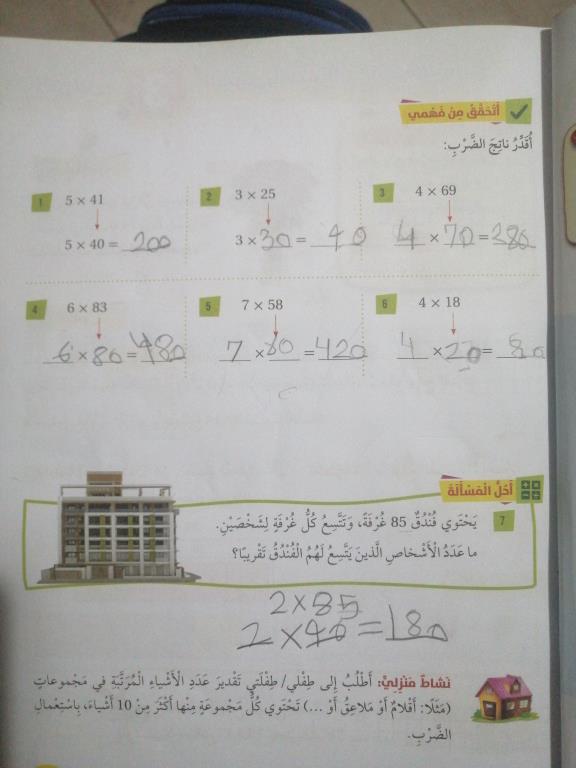 أَتَحَقَّقُ مِنْ فَهْمي
أُقَدِّرُ ناتِجَ الضَّرْبِ:
1 5 × 41
5 × 40 = 200
2 3 × 25
3 × 30 = 90
3 4 × 69
4 × 70 = 280
4 6 × 83
6 × 80 = 480
5 7 × 58
7 × 60 = 420
6 4 × 18
4 × 20 = 80
أَحُلُّ الْمَسْأَلَةَ
7 يَحْتَوي فُنْدُقٌ 85 غُرْفَةً، وَتَتَّسِعُ كُلُّ غُرْفَةٍ لِشَخْصَيْنِ.
ما عَدَدُ الْأَشْخاصِ الَّذينَ يَتَّسِعُ لَهُمُ الْفُنْدُقُ تَقْريبًا؟
2 × 85
2 × 90 = 180
نَشاطٌ مَنْزِلِيٌّ: أَطْلُبُ إِلى طِفْلي/ طِفْلَتي تَقْديرَ عَدَدِ الْأَشْياءِ الْمُرَتَّبَةِ في مَجْموعاتٍ
(مَثَلًا: أَقْلامٌ أَوْ مَلاعِقُ أَوْ ...) تَحْتَوي كُلُّ مَجْموعَةٍ مِنْها أَكْثَرَ مِنْ 10 أَشْياءَ، بِاسْتِعْمالِ
الضَّرْبِ.